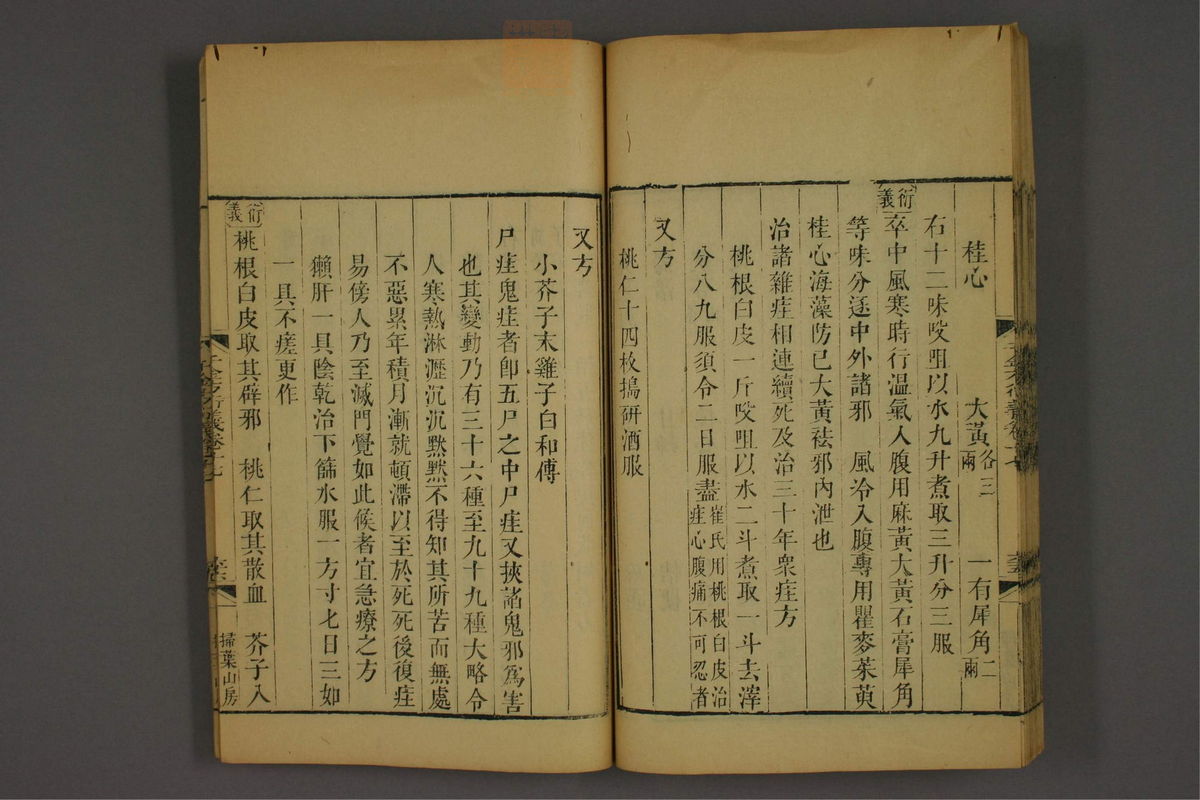 桂心　大黃各三兩　一有犀角二兩
右十二味㕮咀以水九升煮取三升分三服
衍義
卒中風寒時行温氣人腹用麻黃大黃石膏犀角
等味分逐中外諸邪　風冷入腹專用瞿麥茱萸
桂心海藻防已大黃祛邪內泄也
治諸雜疰相連續死及治三十年衆疰方
桃根白皮一斤㕮咀以水二斗煮取一斗去滓
分八九服須令二日服盡崔氏用桃根白皮治疰心腹痛不可忍者
又方
桃仁十四枚搗研酒服
又方
小芥子末雞子白和傅
尸疰鬼疰者卽五尸之中尸疰又挾諸鬼邪爲害
也其變動乃有三十六種至九十九種大略令
人寒熱淋瀝沉沉默默不得知其所苦而無處
不惡累年積月漸就頓滯以至於死死後復疰
易傍人乃至滅門覺如此候者宜急療之方
獺肝一具陰乾治下篩水服一方寸七日三如
一具不瘥更作
衍義
桃根白皮取其辟邪　桃仁取其散血　芥子入
掃葉山房